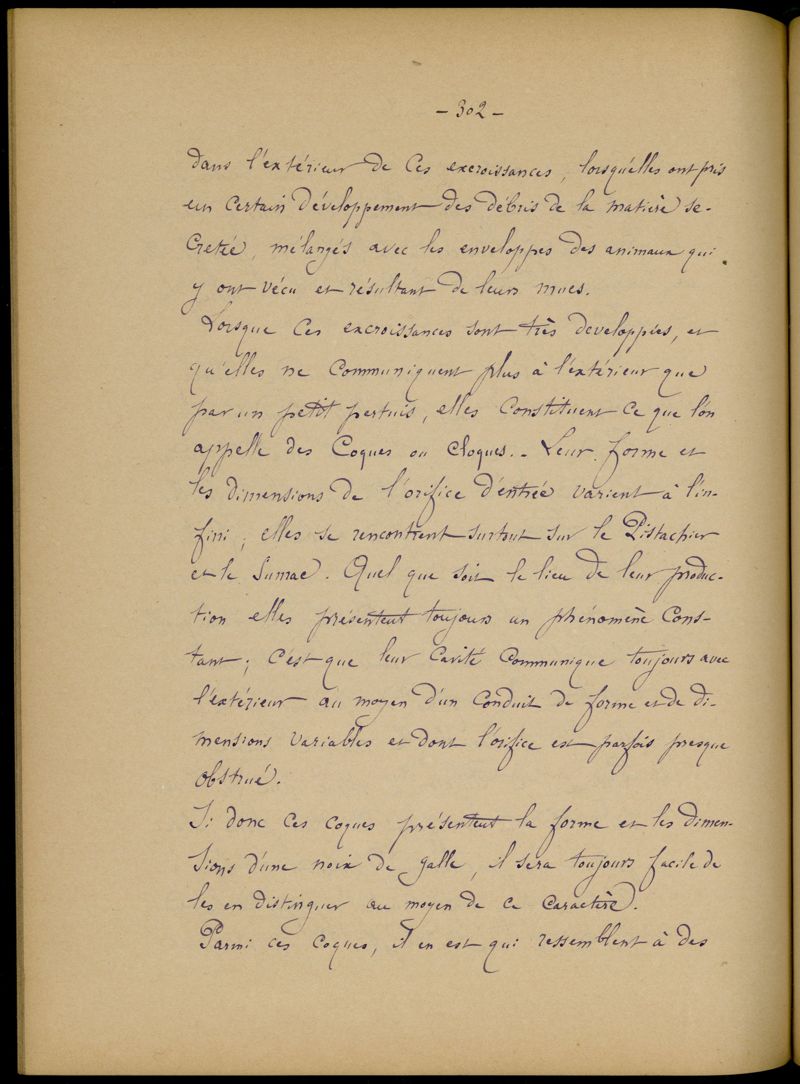 - 302 -
dans l'extérieur de ces excroissances, lorsqu'elles ont pris
un certain développement des débris de la matière se-
cretée, mélangés avec les enveloppes des animaux qui
y ont vécu et résultant de leurs mues.
Lorsque ces excroissances sont très developpées, et
qu'elles ne communiquent plus à l'extérieur que
par un petit pertuis, elles constituent ce que l'on
appelle des Coques ou Cloques. - Leur forme et
les dimensions de l'orifice d'entrée varient à l'in-
fini ; elles se rencontrent surtout sur le Pistachier
et le Sumac. Quel que soit le lieu de leur produc-
tion elles présentent toujours un phénomène cons-
tant ; c'est que leur cavité communique toujours avec
l'extérieur au moyen d'un conduit de forme et de di-
mensions variables et dont l'orifice est parfois presque
obstrué.
Si donc ces coques présentent la forme et les dimen-
sions d'une noix de galle, il sera toujours facile de
les en distinguer au moyen de ce caractère.
Parmi ces coques, il en est qui ressemblent à des